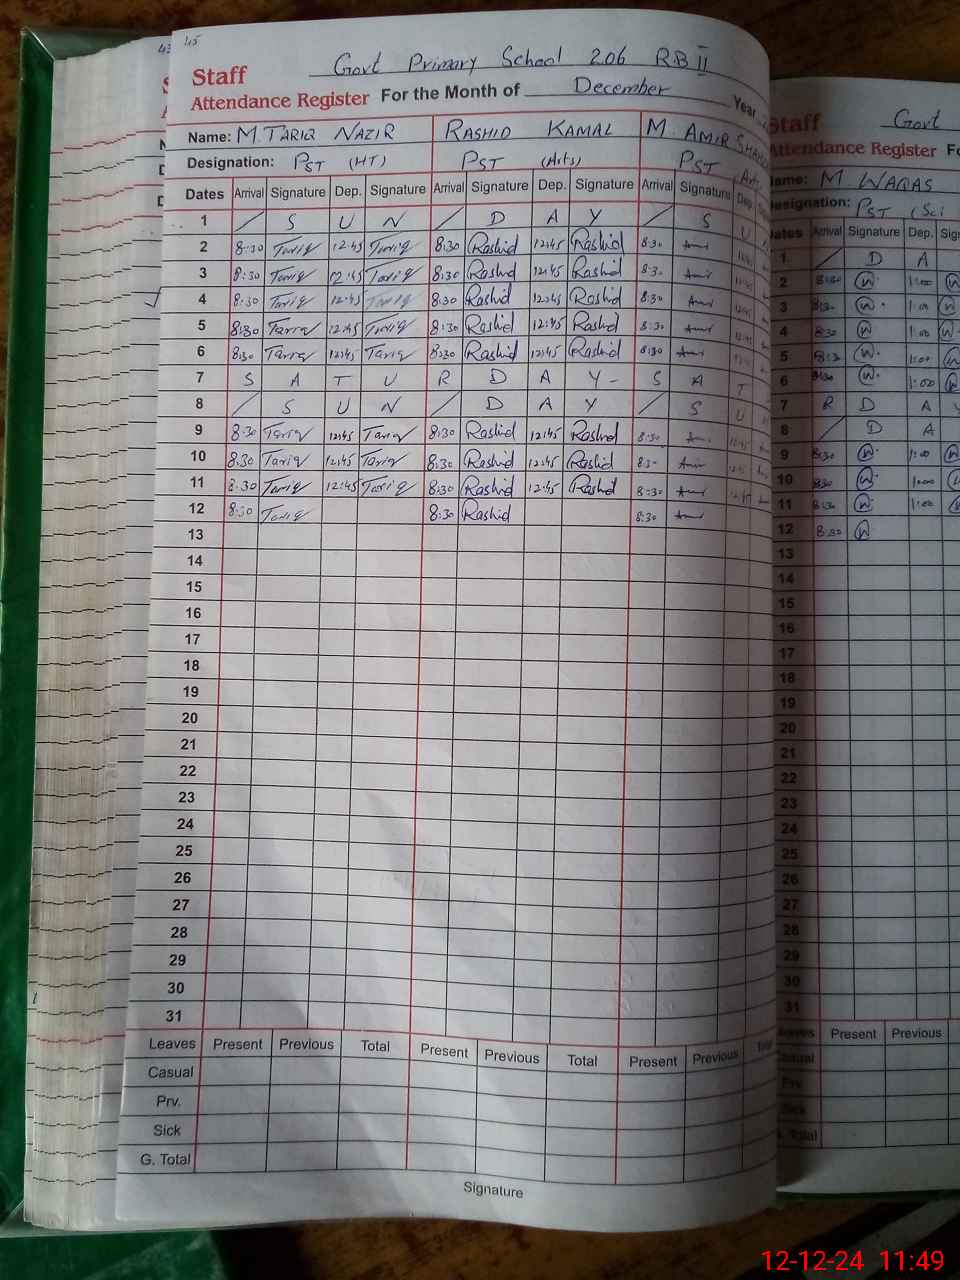 45
Govt Primary School 206 RB II
Staff
Attendance Register For the Month of December Year
Name: M. TARIQ NAZIR RASHID KAMAL M. AMIR
Designation: PST (HT) PST (Arts) PST
Dates Arrival Signature Dep. Signature Arrival Signature Dep. Signature Arrival Signature Dep.
1 / S U N / D A Y / S U
2 8:30 Tariq 12:45 Tariq 8:30 Rashid 12:45 Rashid 8:30 Amir
3 8:30 Tariq 12:45 Tariq 8:30 Rashid 12:45 Rashid 8:30 Amir
4 8:30 Tariq 12:45 Tariq 8:30 Rashid 12:45 Rashid 8:30 Amir
5 8:30 Tariq 12:45 Tariq 8:30 Rashid 12:45 Rashid 8:30 Amir
6 8:30 Tariq 12:45 Tariq 8:30 Rashid 12:45 Rashid 8:30 Amir
7 S A T U R D A Y - S A T
8 / S U N / D A Y / S U
9 8:30 Tariq 12:45 Tariq 8:30 Rashid 12:45 Rashid 8:30 Amir 12:45
10 8:30 Tariq 12:45 Tariq 8:30 Rashid 12:45 Rashid 8:30 Amir 12:45
11 8:30 Tariq 12:45 Tariq 8:30 Rashid 12:45 Rashid 8:30 Amir 12:45
12 8:30 Tariq 8:30 Rashid 8:30 Amir
13
14
15
16
17
18
19
20
21
22
23
24
25
26
27
28
29
30
31
Leaves Present Previous Total Present Previous Total Present Previous
Casual
Prv.
Sick
G. Total
Signature
Staff Govt
Attendance Register
M WAQAS
Designation: PST (Sci
Arrival Signature Dep.
1 / D A
2 8:30 W 1:00 W
3 8:30 W 1:00 W
4 8:30 W 1:00 W
5 8:30 W 1:00 W
6 8:30 W 1:00 W
7 R D A Y
8 / D A
9 8:30 W 1:00 W
10 8:30 W 1:00 W
11 8:30 W 1:00 W
12 8:30 W
13
14
15
16
17
18
19
20
21
22
23
24
25
26
27
28
29
30
31
Leaves Present Previous
Casual
Prv
Sick
Total
12-12-24 11:49